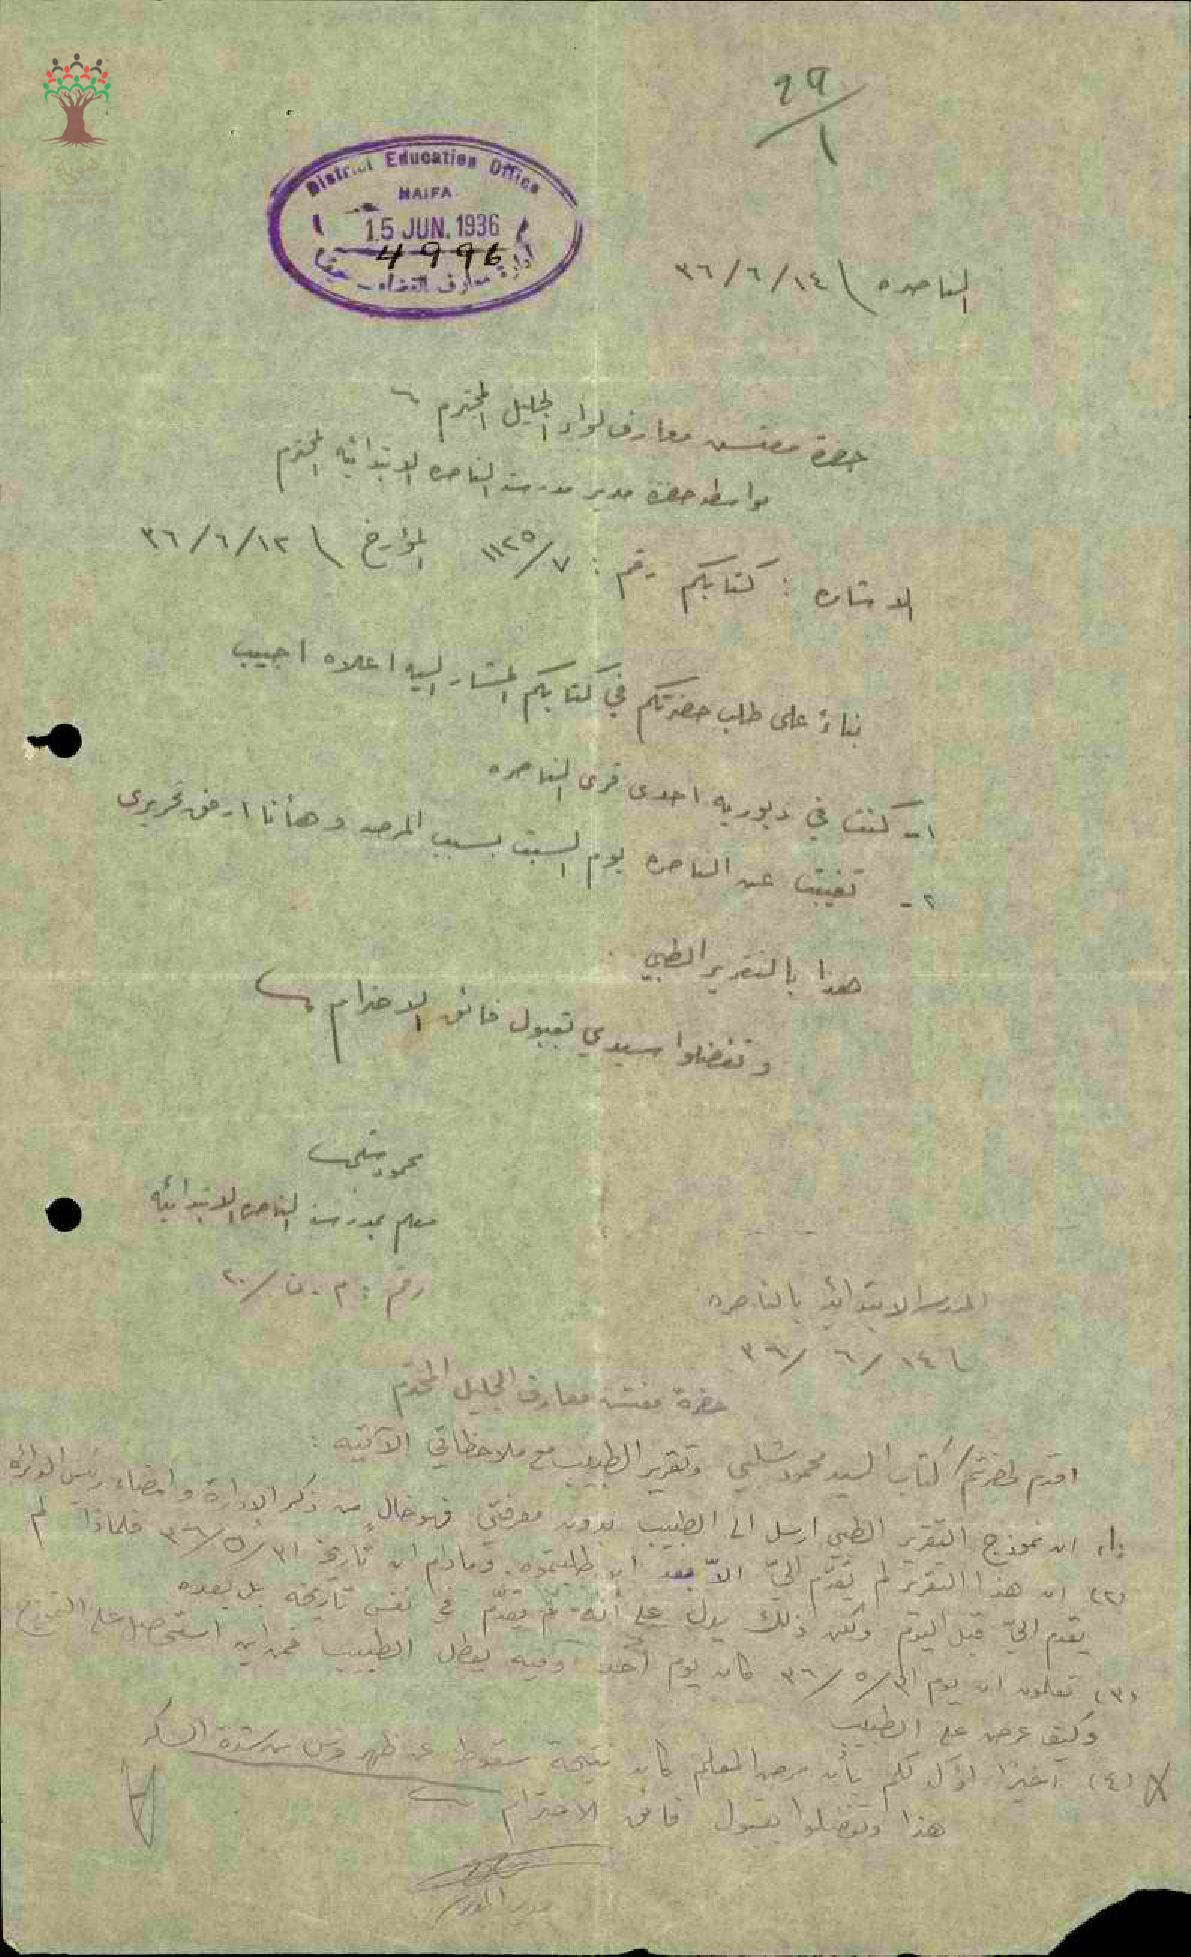 ٢٩
١
District Education Office
HAIFA
15 JUN. 1936
4996
ادارة معارف القضاء - حيفا
الناصره \ ٣٦/٦/١٤
حضرة مفتش معارف لواء الجليل المحترم
بواسطة حضرة مدير مدرسة الناصره الابتدائيه المحترم
الاشاره : كتابكم رقم : ١١٢٥/٧ المؤرخ \ ٣٦/٦/١٢
بناءً على طلب حضرتكم في كتابكم المشار اليه اعلاه اجيب
١- كنت في دبوريه احدى قرى الناصره
٢- تغيبت عن الناصره يوم السبت بسبب المرض وهأنا ارفق تحريري
هذا بالتقرير الطبي .
وتفضلوا سيدي بقبول فائق الاحترام
محمود شلبي
معلم بمدرسة الناصره الابتدائيه
رقم : م . ن / ٢٠
المدرسه الابتدائيه بالناصره
٣٦/ ٦ / ١٤
حضرة مفتش معارف الجليل المحترم
اقدم لحضرتكم كتاب السيد محمود شلبي وتقرير الطبيب مع ملاحظاتي الآتيه :
(١) ان نموذج التقرير الطبي ارسل الى الطبيب بدون معرفتي فهو خالٍ من ذكر الإدارة وامضاء رئيس الدائره
(٢) ان هذا التقرير لم يقدّم اليّ الاّ بعد ان طلبتموه. وما دام ان تاريخه ٣٦/٥/٣١ فلماذا لم
يقدم اليّ قبل اليوم ولكن ذلك يدل على أنه لم يقدّم في نفس تاريخه بل بعده
(٣) تعلمون ان يوم ٣٦/٥/٣١ كان يوم أحد وفيه يعطل الطبيب فمن اين استحصل على النموذج
وكيف عرض على الطبيب
(٤) اخيرًا اؤكد لكم بأن مرض المعلم كان نتيجة سقوط عن ظهر فرس من شدة السكر
هذا وتفضلوا بقبول فائق الاحترام
مدير المدرسة